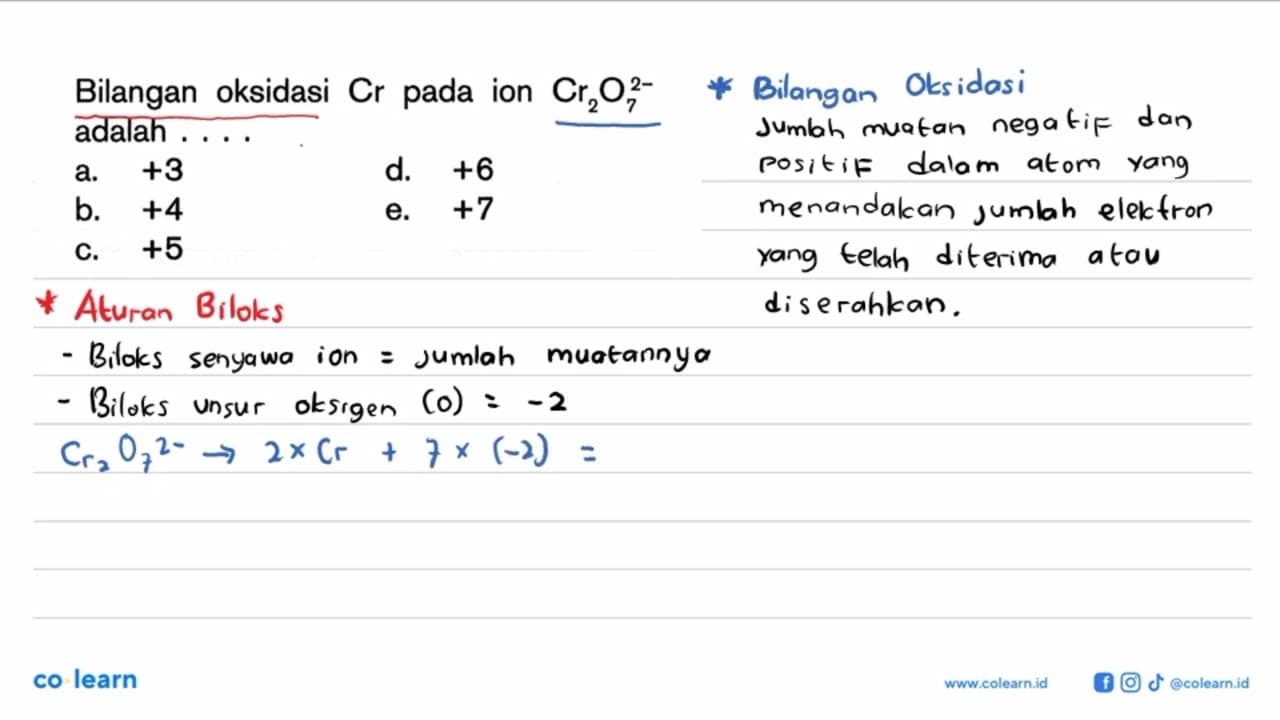 Bilangan oksidasi Cr pada ion Cr₂O₇²⁻
adalah . . . .
a. +3
b. +4
c. +5
d. +6
e. +7
* Bilangan Oksidasi
Jumlah muatan negatif dan
positif dalam atom yang
menandakan jumlah elektron
yang telah diterima atau
diserahkan.
* Aturan Biloks
- Biloks senyawa ion = jumlah muatannya
- Biloks unsur oksigen (O) = -2
Cr₂O₇²⁻ → 2 × Cr + 7 × (-2) =
co learn
www.colearn.id
@colearn.id